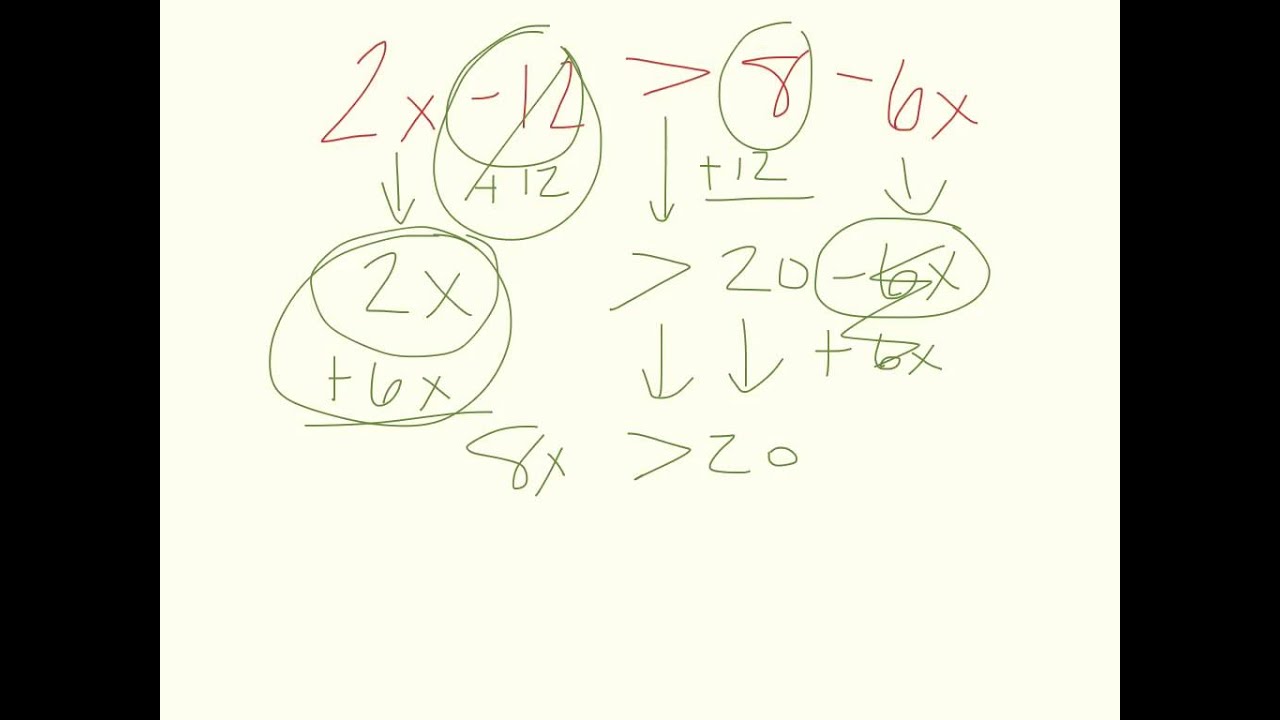 2x - 12 > 8 - 6x
+12 +12
2x > 20 - 6x
+6x + 6x
8x > 20